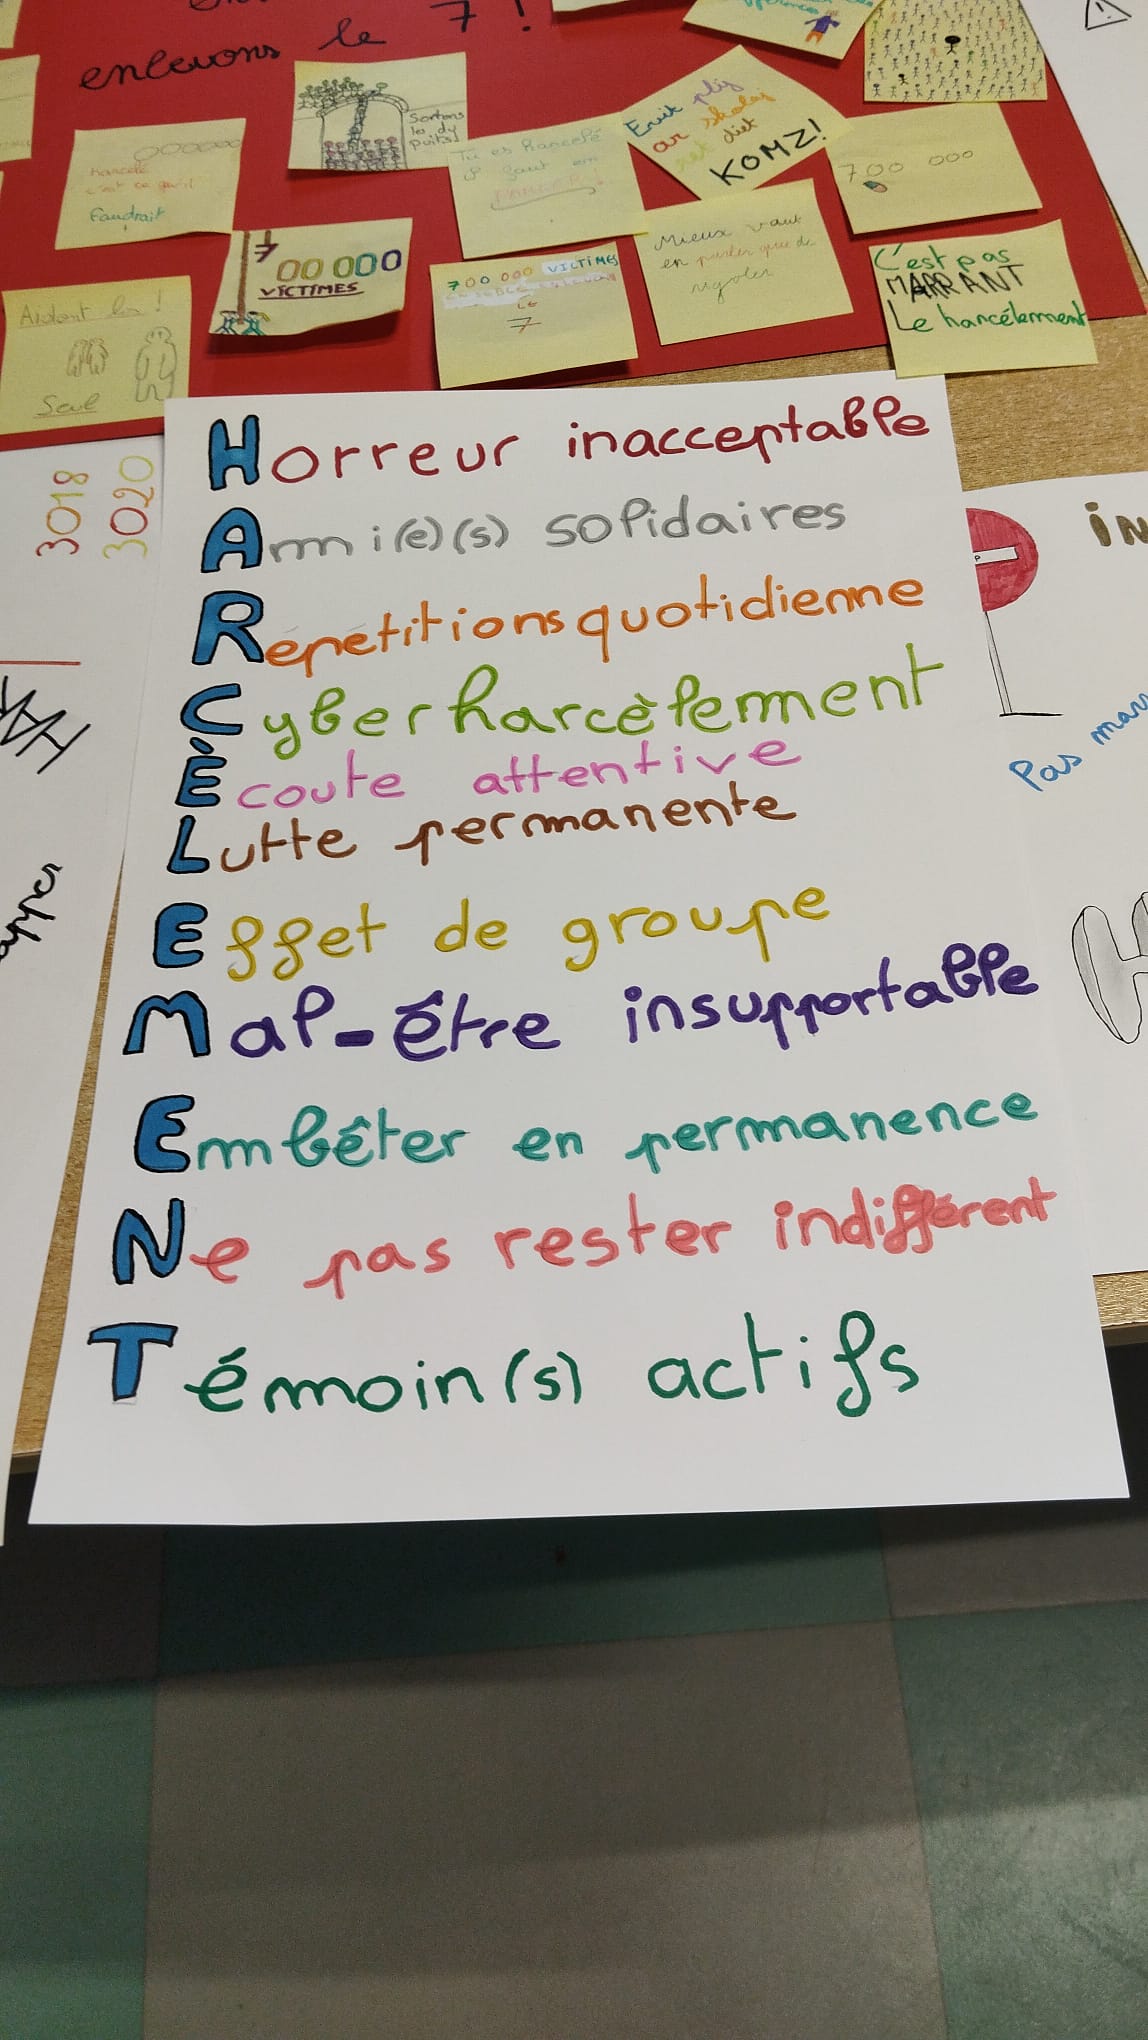 enlevons le 7 !
Sortons
les du
puits!
Enuit plij
ar skolaj
ret diet
KOMZ!
Harcelé
c'est ce qu'il
faudrait
Tu es harcelé
il faut en
PARLER!
700 000
700 000
VICTIMES
700 000 VICTIMES
LE
7
Mieux vaut
en parler que de
rigoler
C'est pas
MARRANT
Le harcélement
Aidont les !
Seul
3018
3020
Horreur inacceptable
Ami(e)(s) solidaires
Répétitions quotidienne
Cyberharcèlement
Ècoute attentive
Lutte permanente
Effet de groupe
Mal-être insupportable
Embêter en permanence
Ne pas rester indifférent
Témoin(s) actifs
Pas